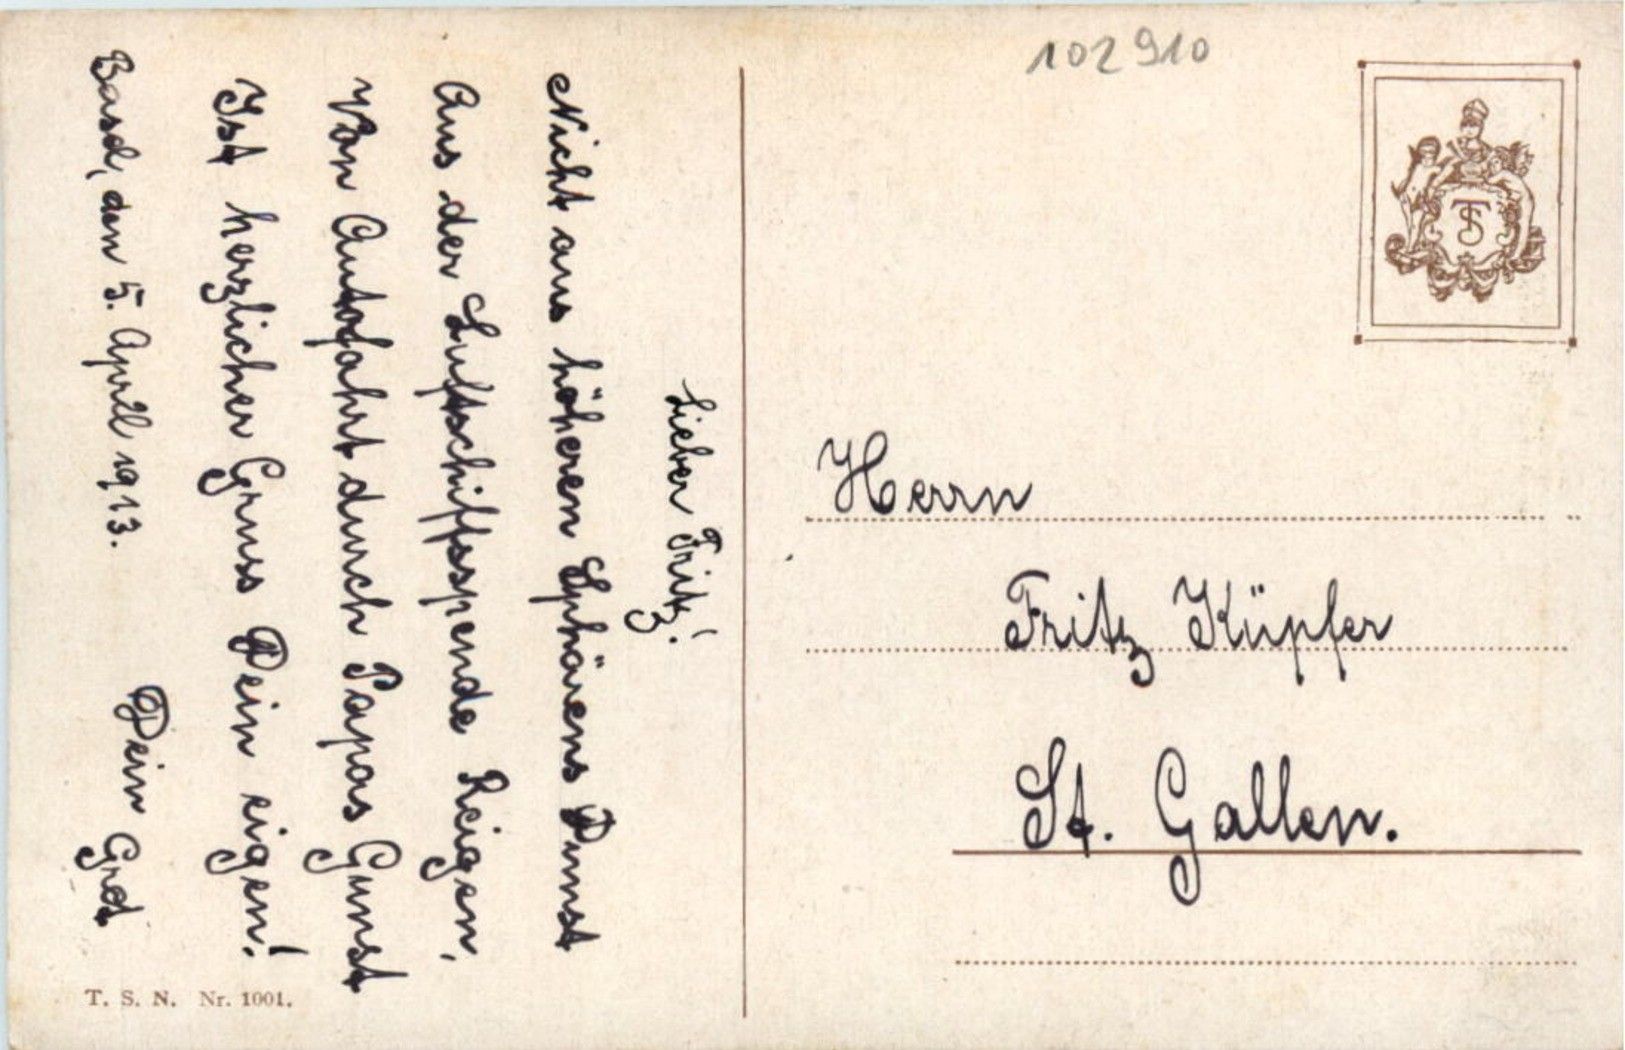 Lieber Fritz!
Nicht aus höheren Sphärens Dunst
Aus der Luftschiffsspende Reigen,
Von Autofahrt durch Papas Gunst
Ist herzlicher Gruss Dein eigen!
Basel, den 5. April 1913.
Dein Gret
T. S. N. Nr. 1001.
102910
TS
Herrn
Fritz Küpfer
St. Gallen.